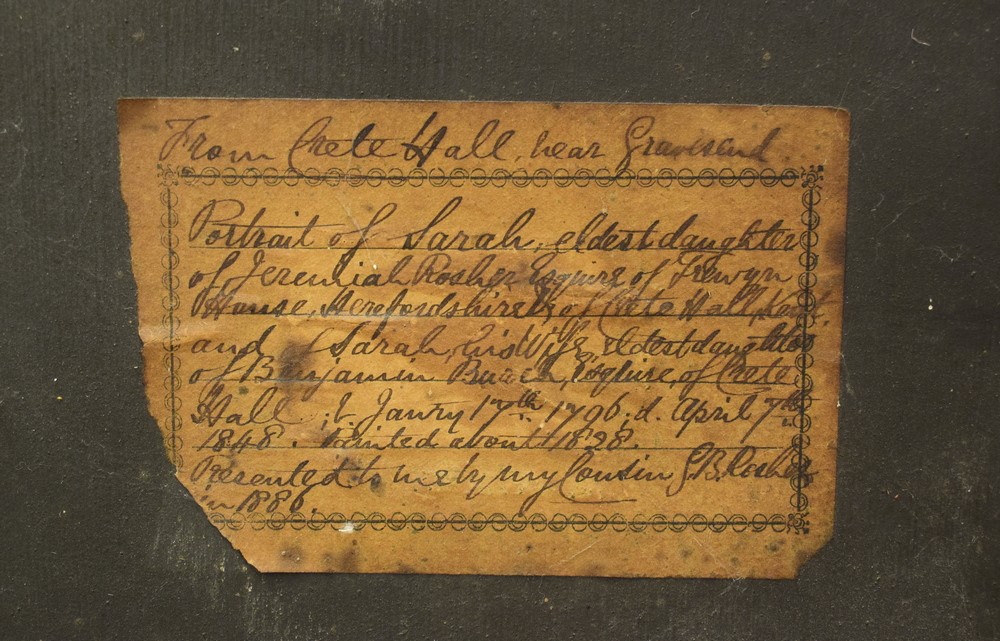 From Crete Hall, near Gravesend.
Portrait of Sarah, eldest daughter
of Jeremiah Rosher Esquire of Trewyn
House, Herefordshire & of Crete Hall, Kent.
and Sarah, his Wife, eldest daughter
of Benjamin Burch, Esquire, of Crete
Hall; b. Janry 17th 1796; d. April 7th
1848. Painted about 1828.
Presented to me by my Cousin G.B. Rosher
in 1886.